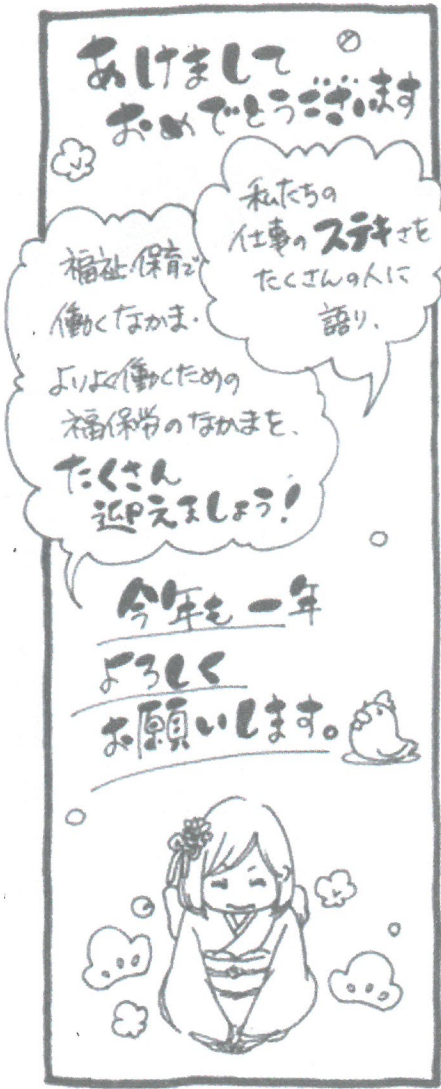 あけまして
おめでとうございます
私たちの
仕事のステキさを
たくさんの人に
語り、
福祉保育で
働くなかま・
よりよく働くための
福保労のなかまを、
たくさん
迎えましょう!
今年も一年
よろしく
お願いします。